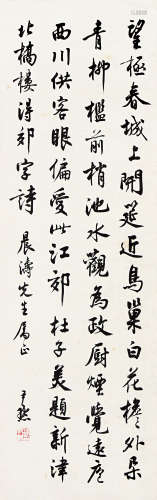 望極春城上開筵近鳥巢白花檐外朵
青柳檻前梢池水觀為政厨煙覺遠庖
西川供客眼偏愛此江郊杜子美題新津
北橋樓得郊字詩
晨濤先生屬正
尹默